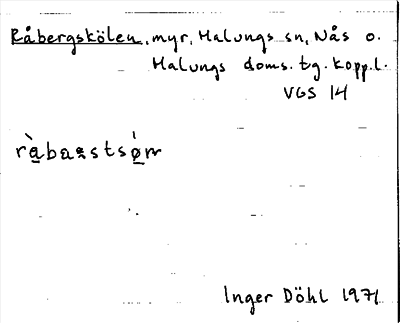 Råbergskölen, myr, Malungs sn, Nås o.
Malungs doms. tg. Kopp.l.
VGS 14
Inger Döhl 1971